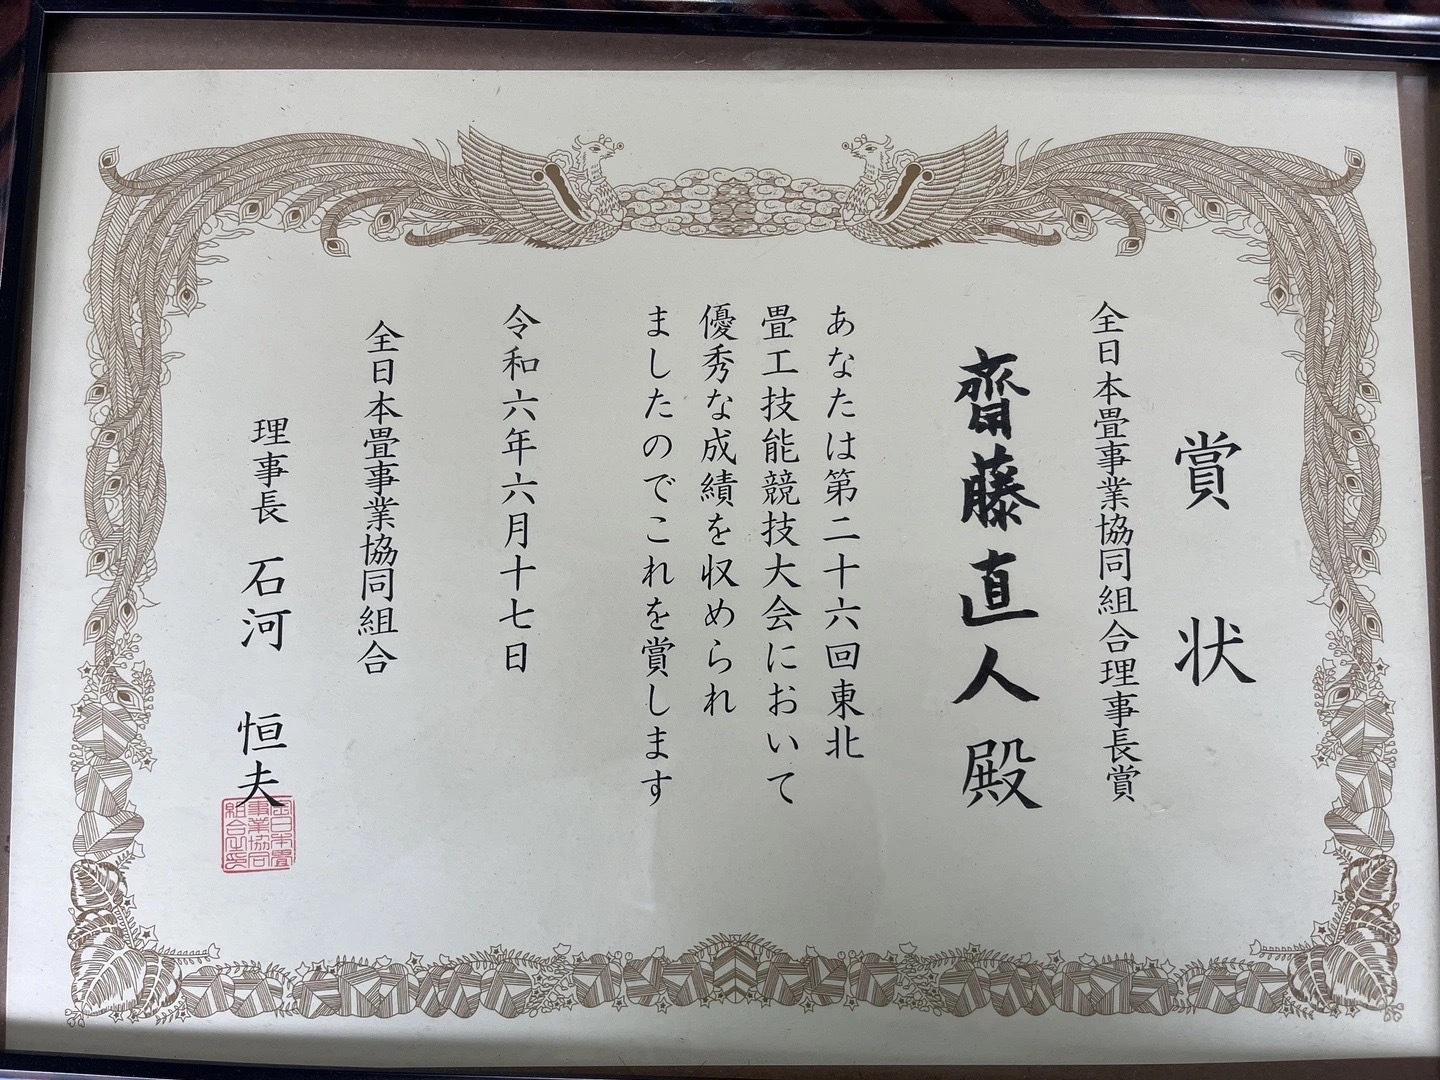 賞状
全日本畳事業協同組合理事長賞
齊藤直人殿
あなたは第二十六回東北
畳工技能競技大会において
優秀な成績を収められ
ましたのでこれを賞します
令和六年六月十七日
全日本畳事業協同組合
理事長 石河 恒夫
全日本畳
事業協同
組合之印